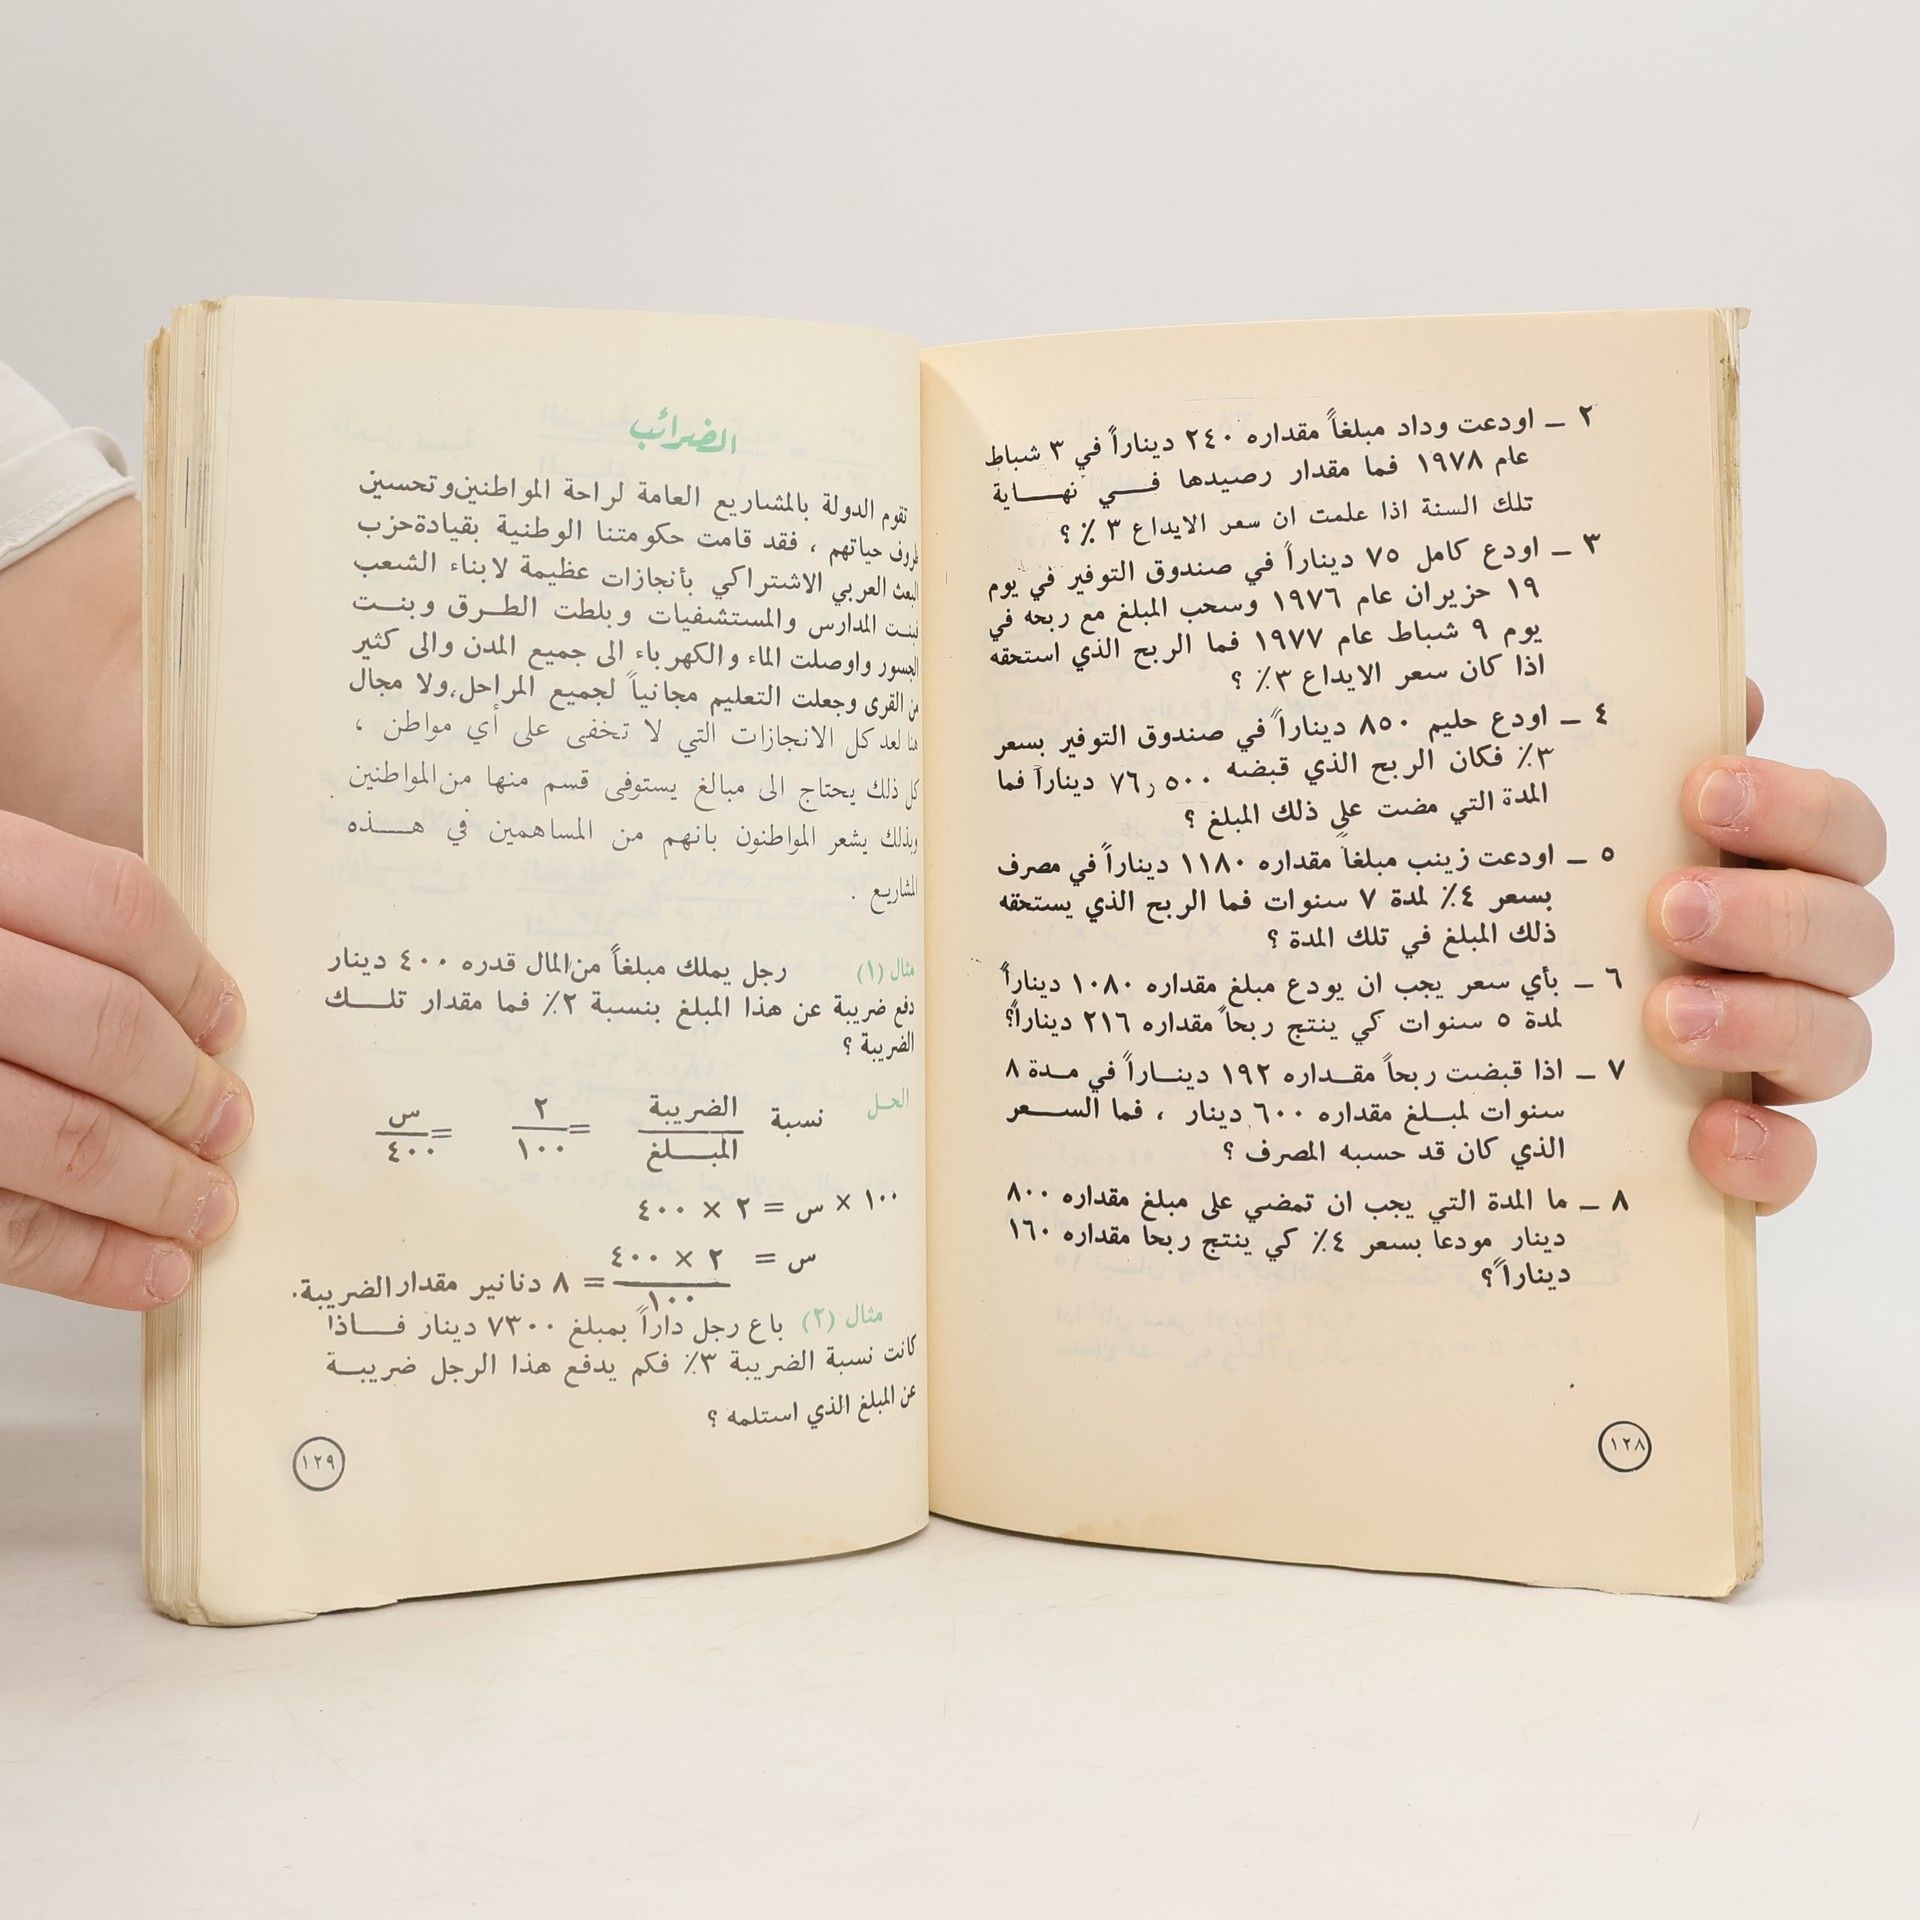 ٢ ـ اودعت وداد مبلغاً مقداره ٢٤٠ ديناراً في ٣ شباط
عام ١٩٧٨ فما مقدار رصيدها فـــي نهـــاية
تلك السنة اذا علمت ان سعر الايداع ٣ ٪ ؟
٣ ـ اودع كامل ٧٥ ديناراً في صندوق التوفير في يوم
١٩ حزيران عام ١٩٧٦ وسحب المبلغ مع ربحه في
يوم ٩ شباط عام ١٩٧٧ فما الربح الذي استحقه
اذا كان سعر الايداع ٣٪ ؟
٤ ـ اودع حليم ٨٥٠ ديناراً في صندوق التوفير بسعر
٣٪ فكان الربح الذي قبضه ٧٦٫٥٠٠ ديناراً فما
المدة التي مضت على ذلك المبلغ ؟
٥ ـ اودعت زينب مبلغاً مقداره ١١٨٠ ديناراً في مصرف
بسعر ٤٪ لمدة ٧ سنوات فما الربح الذي يستحقه
ذلك المبلغ في تلك المدة ؟
٦ ـ بأي سعر يجب ان يودع مبلغ مقداره ١٠٨٠ ديناراً
لمدة ٥ سنوات كي ينتج ربحاً مقداره ٢١٦ ديناراً؟
٧ ـ اذا قبضت ربحاً مقـداره ١٩٢ دينـــاراً في مـدة ٨
سنوات لمبـلغ مقداره ٦٠٠ دينار ، فما الســـعر
الذي كان قد حسبه المصرف ؟
٨ ـ ما المدة التي يجب ان تمضي على مبلغ مقداره ٨٠٠
دينار مودعا بسعر ٤٪ كي ينتج ربحا مقداره ١٦٠
ديناراً؟
١٢٨
الضرائب
تقوم الدولة بالمشاريع العامة لراحة المواطنين وتحسين
ظروف حياتهم ، فقد قامت حكومتنا الوطنية بقيادة حزب
البعث العربي الاشتراكي بأنجازات عظيمة لابناء الشعب
فبنـت المدارس والمستشفيات وبلطت الطـرق وبنـت
الجسور واوصلت الماء والكهرباء الى جميع المدن والى كثير
من القرى وجعلت التعليم مجانياً لجميع المراحل، ولا مجال
هنا لعد كل الانجازات التي لا تخفى على أي مواطن ،
كل ذلك يحتاج الى مبالغ يستوفى قسم منها من المواطنين
وبذلك يشعر المواطنون بانهم من المساهمين في هـــذه
المشاريع .
مثال (١) رجل يملك مبلغاً من المال قدره ٤٠٠ دينار
دفع ضريبة عن هذا المبلغ بنسبة ٢٪ فما مقدار تلـــك
الضريبة ؟
الحـل نسبة الضريبة / المبـــلغ = ٢ / ١٠٠ = س / ٤٠٠
١٠٠ × س = ٢ × ٤٠٠
س = ٢ × ٤٠٠ / ١٠٠ = ٨ دنانير مقدار الضريبة.
مثال (٢) باع رجل داراً بمبلغ ٧٣٠٠ دينار فـــاذا
كانت نسبة الضريبة ٣٪ فكم يدفع هذا الرجل ضريبـة
عن المبلغ الذي استلمه ؟
١٢٩